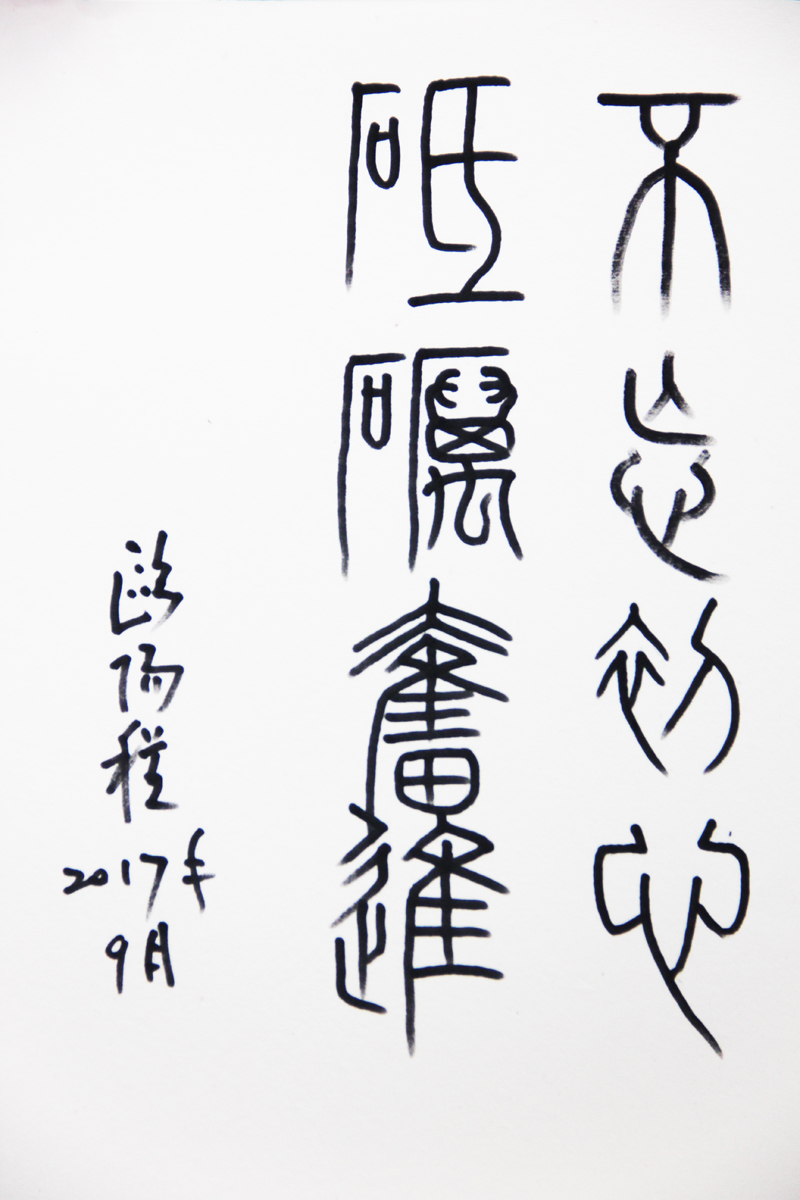 不忘初心
砥礪奮進
歐陽程
2017年
9月